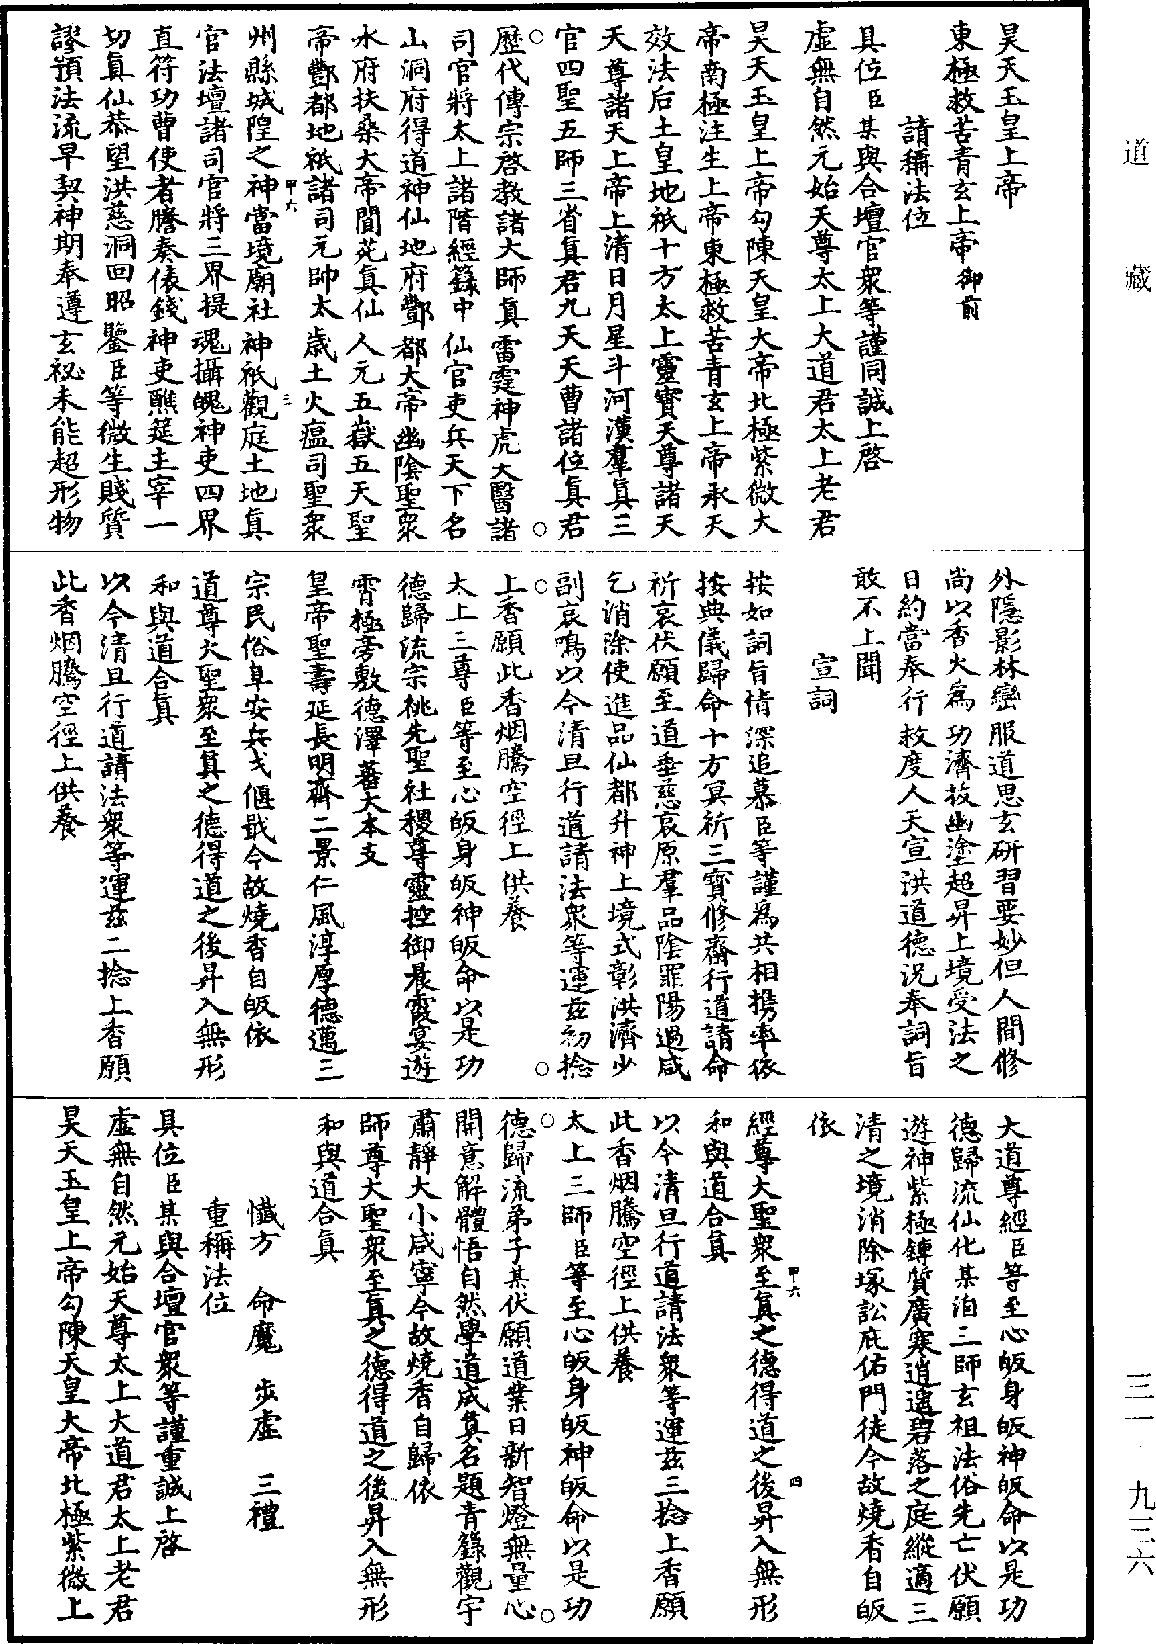 昊天玉皇上帝
東極救苦青玄上帝御前
請稱法位
具位臣某與合壇官衆等謹同誠上啓
虛無自然元始天尊太上大道君太上老君
昊天玉皇上帝勾陳天皇大帝北極紫微大
帝南極注生上帝東極救苦青玄上帝承天
效法后土皇地祇十方太上靈寶天尊諸天
天尊諸天上帝上清日月星斗河漢羣真三
官四聖五師三省真君九天天曹諸位真君
歷代傳宗啓教諸大師真雷霆神虎大醫諸
司官將太上諸階經籙中仙官吏兵天下名
山洞府得道神仙地府酆都大帝幽陰聖衆
水府扶桑大帝閬苑真仙人元五嶽五天聖
帝酆都地祇諸司元帥太歲土火瘟司聖衆
州縣城隍之神當境廟社神祇觀庭土地真
官法壇諸司官將三界提魂攝魄神吏四界
直符功曹使者謄奏俵錢神吏醮筵主宰一
切真仙恭望洪慈洞回昭鑒臣等微生賤質
謬預法流早契神期奉遵玄秘未能超形物
甲六
三
外隱影林巒服道思玄研習要妙但人間修
尚以香火爲功濟拔幽塗超昇上境受法之
日約當奉行救度人天宣洪道德況奉詞旨
敢不上聞
宣詞
按如詞旨情深追慕臣等謹爲共相攜率依
按典儀歸命十方冥祈三寶修齋行道請命
祈哀伏願至道垂慈哀原羣品陰罪陽過咸
乞消除使進品仙都升神上境式彰洪濟少
副哀鳴以今清旦行道請法衆等運茲初捻
上香願此香烟騰空徑上供養
太上三尊臣等至心皈身皈神皈命以是功
德歸流宗祧先聖社稷尊靈控御晨霞宴遊
霄極旁敷德澤蕃大本支
皇帝聖壽延長明齊二景仁風淳厚德邁三
宗民俗阜安兵戈偃戢今故燒香自皈依
道尊大聖衆至真之德得道之後昇入無形
和與道合真
以今清旦行道請法衆等運茲二捻上香願
此香烟騰空徑上供養
大道尊經臣等至心皈身皈神皈命以是功
德歸流仙化某洎三師玄祖法俗先亡伏願
遊神紫極鍊質廣寒逍遙碧落之庭縱適三
清之境消除塚訟庇佑門徒今故燒香自皈
依
經尊大聖衆至真之德得道之後昇入無形
和與道合真
甲六
四
以今清旦行道請法衆等運茲三捻上香願
此香烟騰空徑上供養
太上三師臣等至心皈身皈神皈命以是功
德歸流弟子某伏願道業日新智燈無量心
開意解體悟自然學道成真名題青籙觀宇
肅靜大小咸寧今故燒香自歸依
師尊大聖衆至真之德得道之後昇入無形
和與道合真
懺方 命魔 步虛 三禮
重稱法位
具位臣某與合壇官衆等謹重誠上啓
虛無自然元始天尊太上大道君太上老君
昊天玉皇上帝勾陳天皇大帝北極紫微上
道藏
三一 九三六